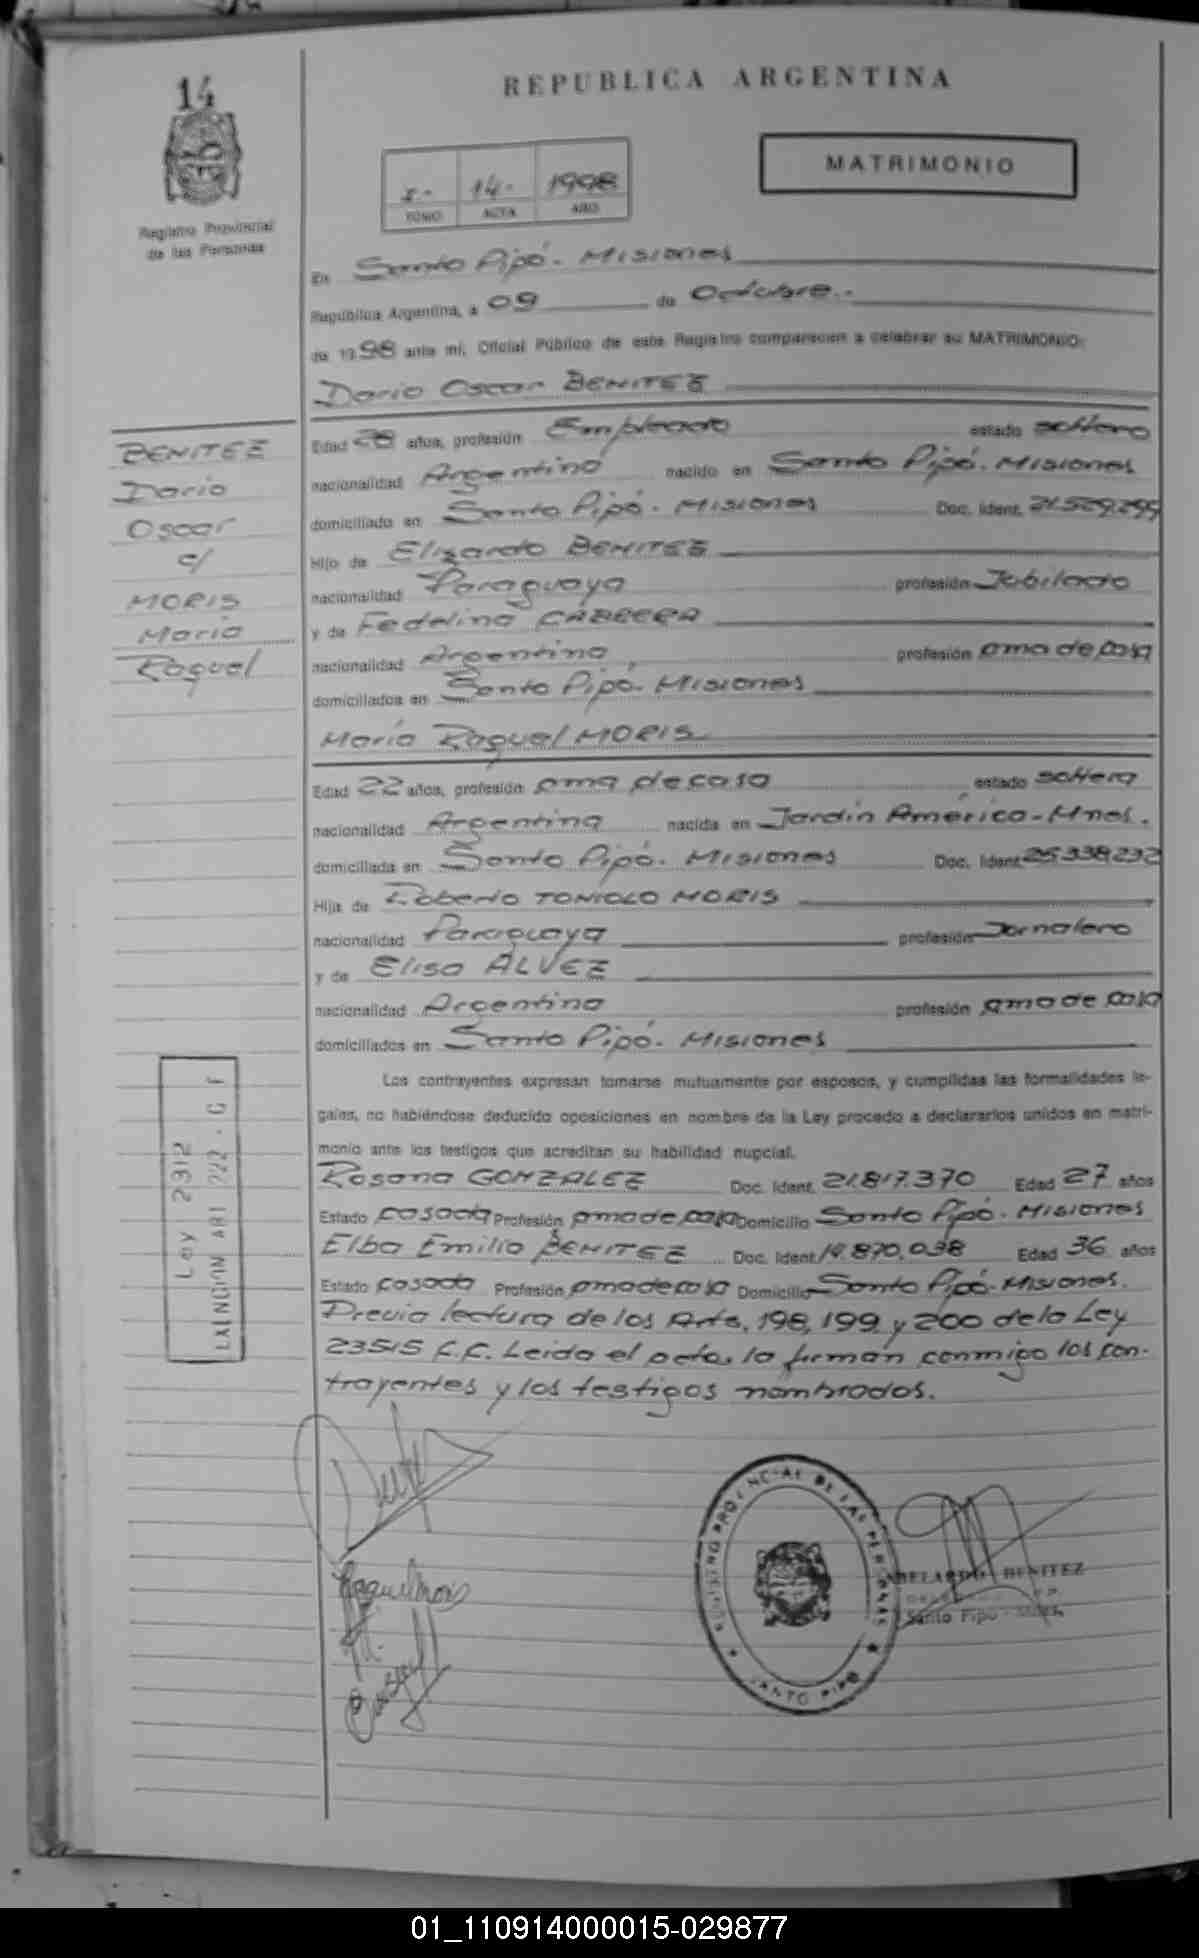 14
REPUBLICA ARGENTINA
MATRIMONIO
I.- 14.- 1998
TOMO ACTA AÑO
Registro Provincial
de las Personas
En Santo Pipó - Misiones
República Argentina, a 09 de Octubre.-
de 1998 ante mí, Oficial Público de este Registro comparecen a celebrar su MATRIMONIO:
Dario Oscar BENITEZ
BENITEZ
Dario
Oscar
c/
MORIS
Maria
Raquel
Edad 28 años, profesión Empleado estado soltero
nacionalidad Argentina nacido en Santo Pipó. Misiones
domiciliado en Santo Pipó - Misiones Doc. Ident. 21.529.299
Hijo de Elizardo BENITEZ
nacionalidad Paraguaya profesión Jubilado
y de Fedelina CABRERA
nacionalidad Argentina profesión ama de casa
domiciliados en Santo Pipó. Misiones
María Raquel MORIS
Edad 22 años, profesión ama de casa estado soltera
nacionalidad Argentina nacida en Jardín América - Mnes.
domiciliada en Santo Pipó. Misiones Doc. Ident. 25.338.232
Hija de Roberto TONIOLO MORIS
nacionalidad Paraguaya profesión Jornalero
y de Elisa ALVEZ
nacionalidad Argentina profesión ama de casa
domiciliados en Santo Pipó. Misiones
Los contrayentes expresan tomarse mutuamente por esposos, y cumplidas las formalidades le-
gales, no habiéndose deducido oposiciones en nombre de la Ley procedo a declararlos unidos en matri-
monio ante los testigos que acreditan su habilidad nupcial.
Rosana GONZALEZ Doc. Ident. 21.817.370 Edad 27 años
Estado casada Profesión ama de casa Domicilio Santo Pipó. Misiones
Elba Emilia BENITEZ Doc. Ident. 14.870.038 Edad 36 años
Estado casada Profesión ama de casa Domicilio Santo Pipó. Misiones.
Previa lectura de los Arts. 198, 199 y 200 de la Ley
23515 C.C. Leida el acta, la firman conmigo los con-
trayentes y los testigos nombrados.
Ley 2312
EXENCION ART 222
Raquel Moris
REGISTRO PROVINCIAL DE LAS PERSONAS
SANTO PIPO
ABELARDO BENITEZ
Santo Pipó - Mnes.
01_110914000015-029877